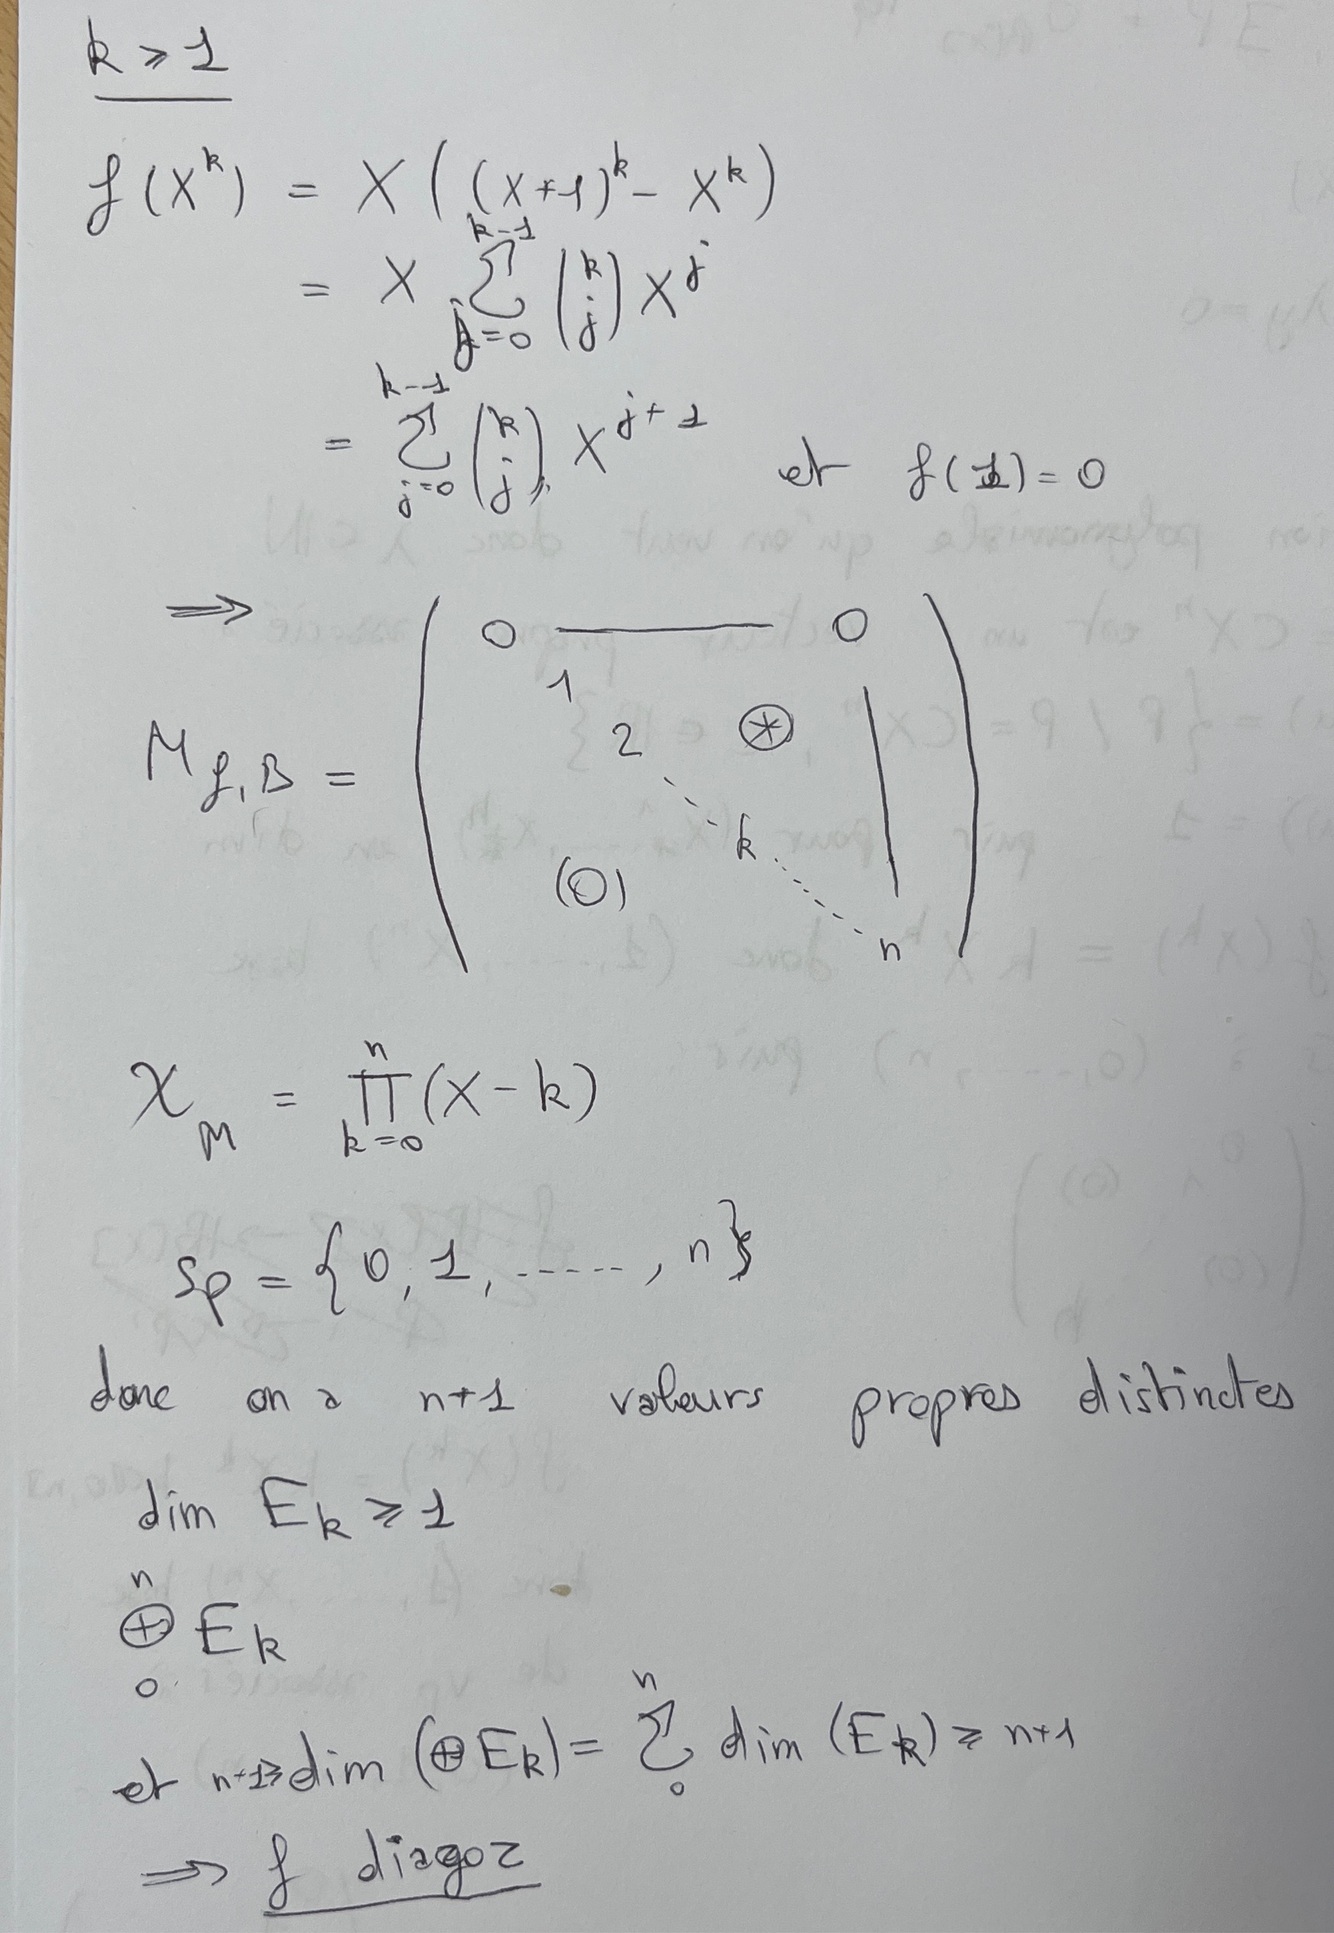 k ⩾ 1
f(X^k) = X((X+1)^k − X^k)
= X ∑_{j=0}^{k−1} (k j) X^j
= ∑_{j=0}^{k−1} (k j) X^{j+1} et f(1) = 0
⇒
M_{f,B} = ( 0 — 0
1
2 ⊛
k
(0)
n )
χ_M = ∏_{k=0}^{n} (X − k)
Sp = {0, 1, ....., n}
donc on a n+1 valeurs propres distinctes
dim E_k ⩾ 1
⊕_0^n E_k
et n+1 ⩾ dim (⊕ E_k) = ∑_0^n dim (E_k) ⩾ n+1
⇒ f diagoz